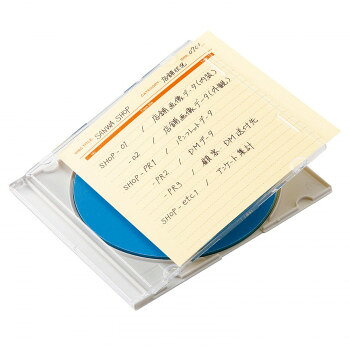 SANWA SHOP 店舗状況
SHOP-01 / 店舗画像データ(内装)
02 / 店舗画像データ(外観)
SHOP-PR1 / パンフレットデータ
-PR2 / DMデータ
-PR3 / 顧客 DM送付先
SHOP-etc1 / アンケート集計